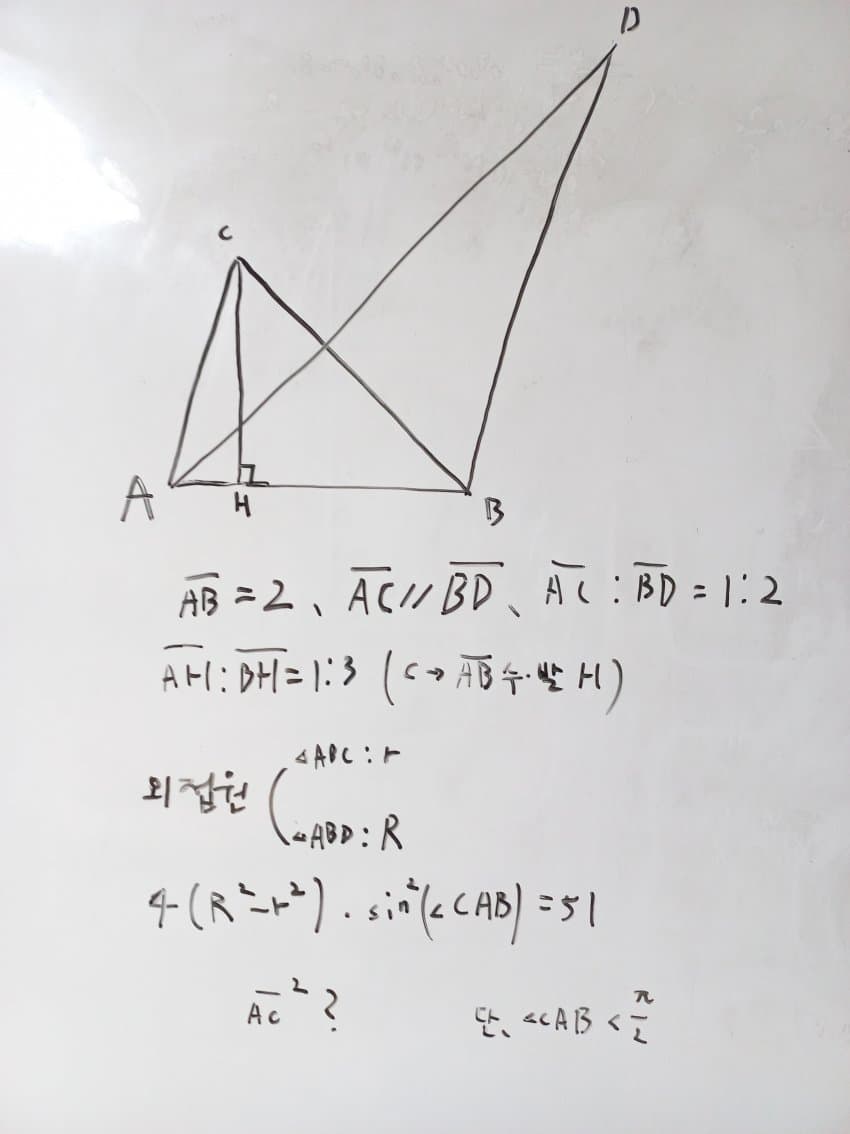 D
C
A
H
B
AB = 2、 AC // BD、 AC : BD = 1 : 2
AH : BH = 1 : 3 ( C → AB 수·발 H )
외접원
△ABC : r
△ABD : R
4 (R² - r²) · sin² (∠CAB) = 51
AC² ?
단、 ∠CAB < π/2